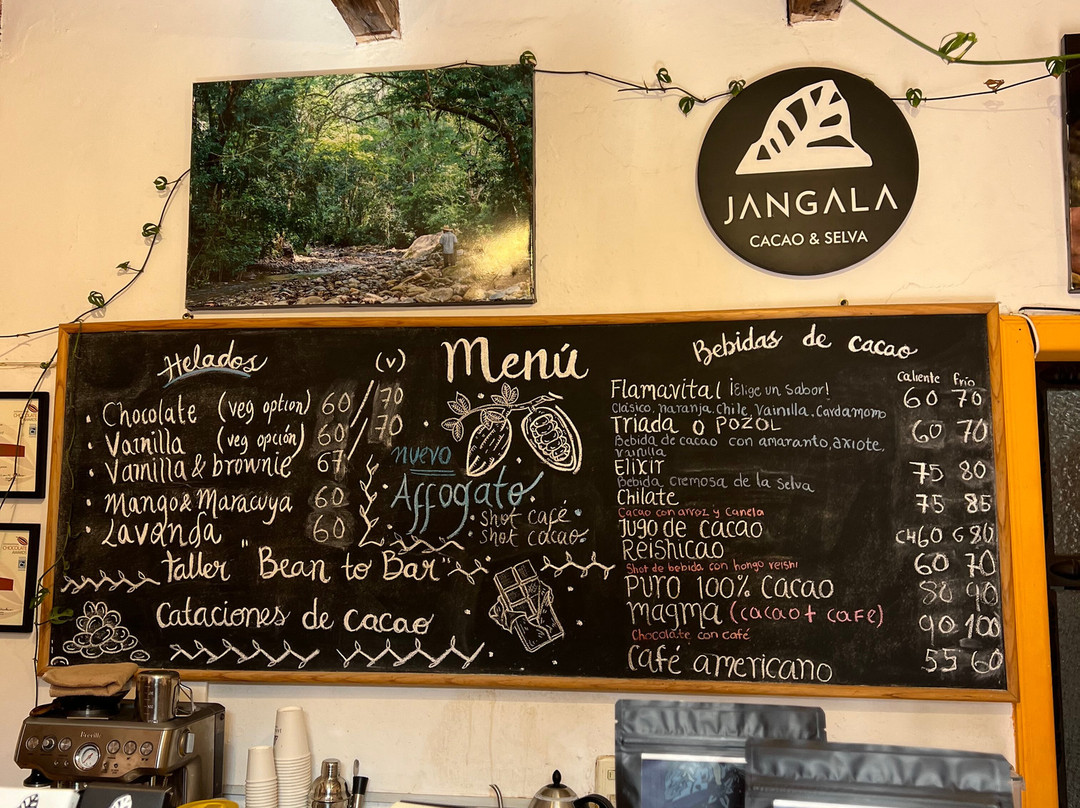 JANGALA
CACAO & SELVA
Menú
Helados (v)
Chocolate (veg option) 60 / 70
Vainilla (veg opción) 60 / 70
Vainilla & brownie 67
Mango & Maracuya 60
Lavanda 60
nuevo
Affogato
shot café
shot cacao
Taller "Bean to Bar"
Cataciones de cacao
Bebidas de cacao
caliente frío
Flamavital ¡Elige un sabor! 60 70
Clásico, naranja, Chile, Vainilla, Cardamomo
Triada o POZOL 60 70
Bebida de cacao con amaranto, axiote,
vainilla
Elixir 75 80
Bebida cremosa de la selva
Chilate 75 85
Cacao con arroz y canela
Jugo de cacao CH60 G80
Reishicao 60 70
Shot de bebida con hongo reishi
Puro 100% Cacao 80 90
magma (cacao + cafe) 90 100
Chocolate con café
Café americano 55 60
Breville